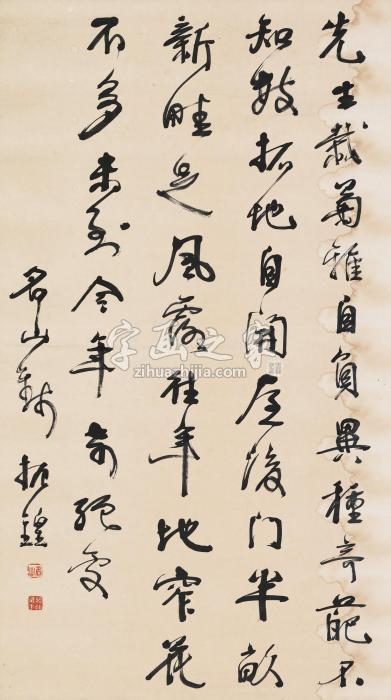 先生栽菊雅自負異種奇葩不
知數拓地自開屋後门半畝
新畦足風露往年地窄花
不多未到今年奇絕處
名山錢振鍠
字画之家
zihuazhijia.com